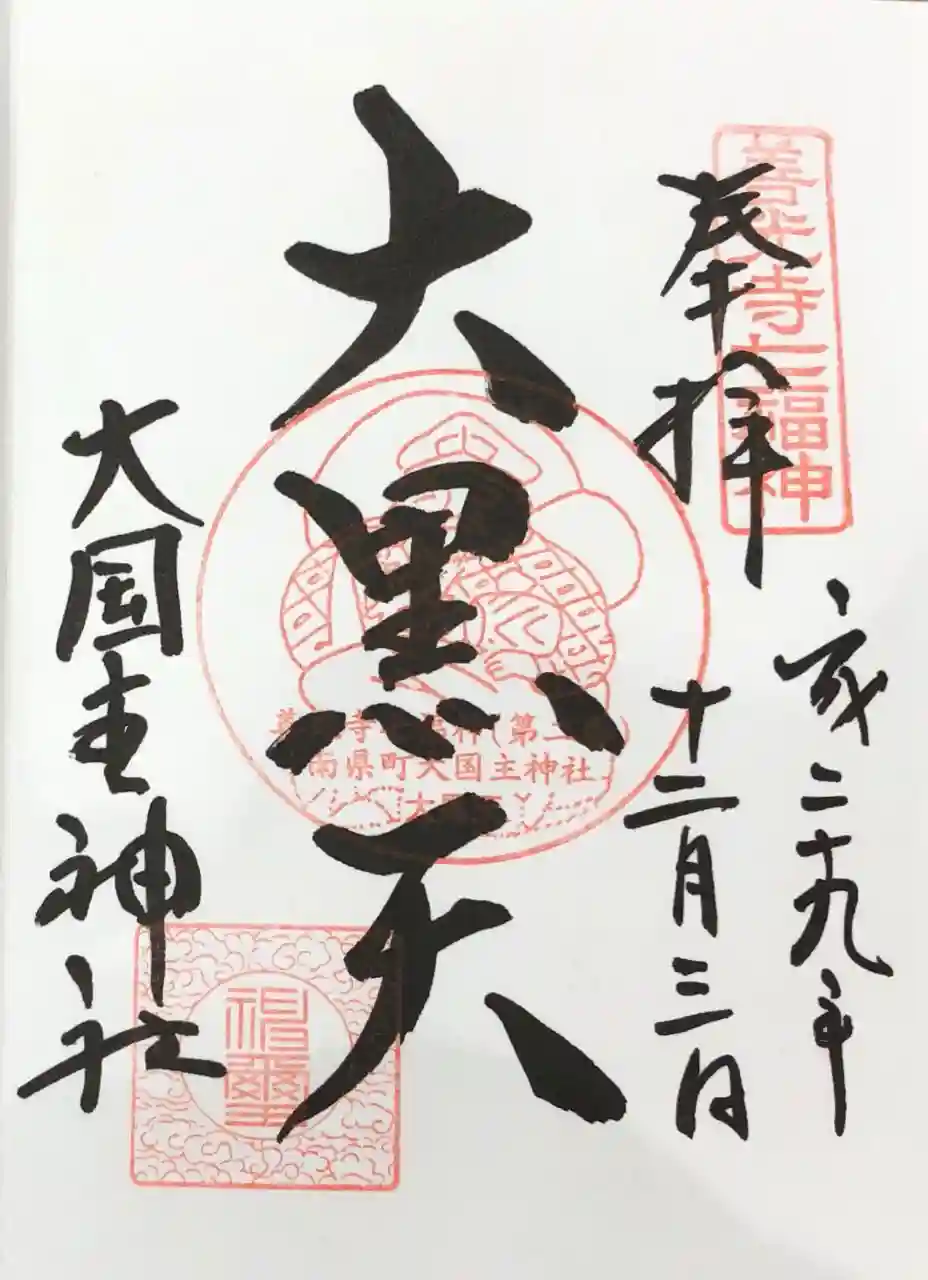 善光寺七福神
奉拝
二十九年
十二月三日
大黒天
善光寺七福神(第二
南県町大国主神社
大国主神社